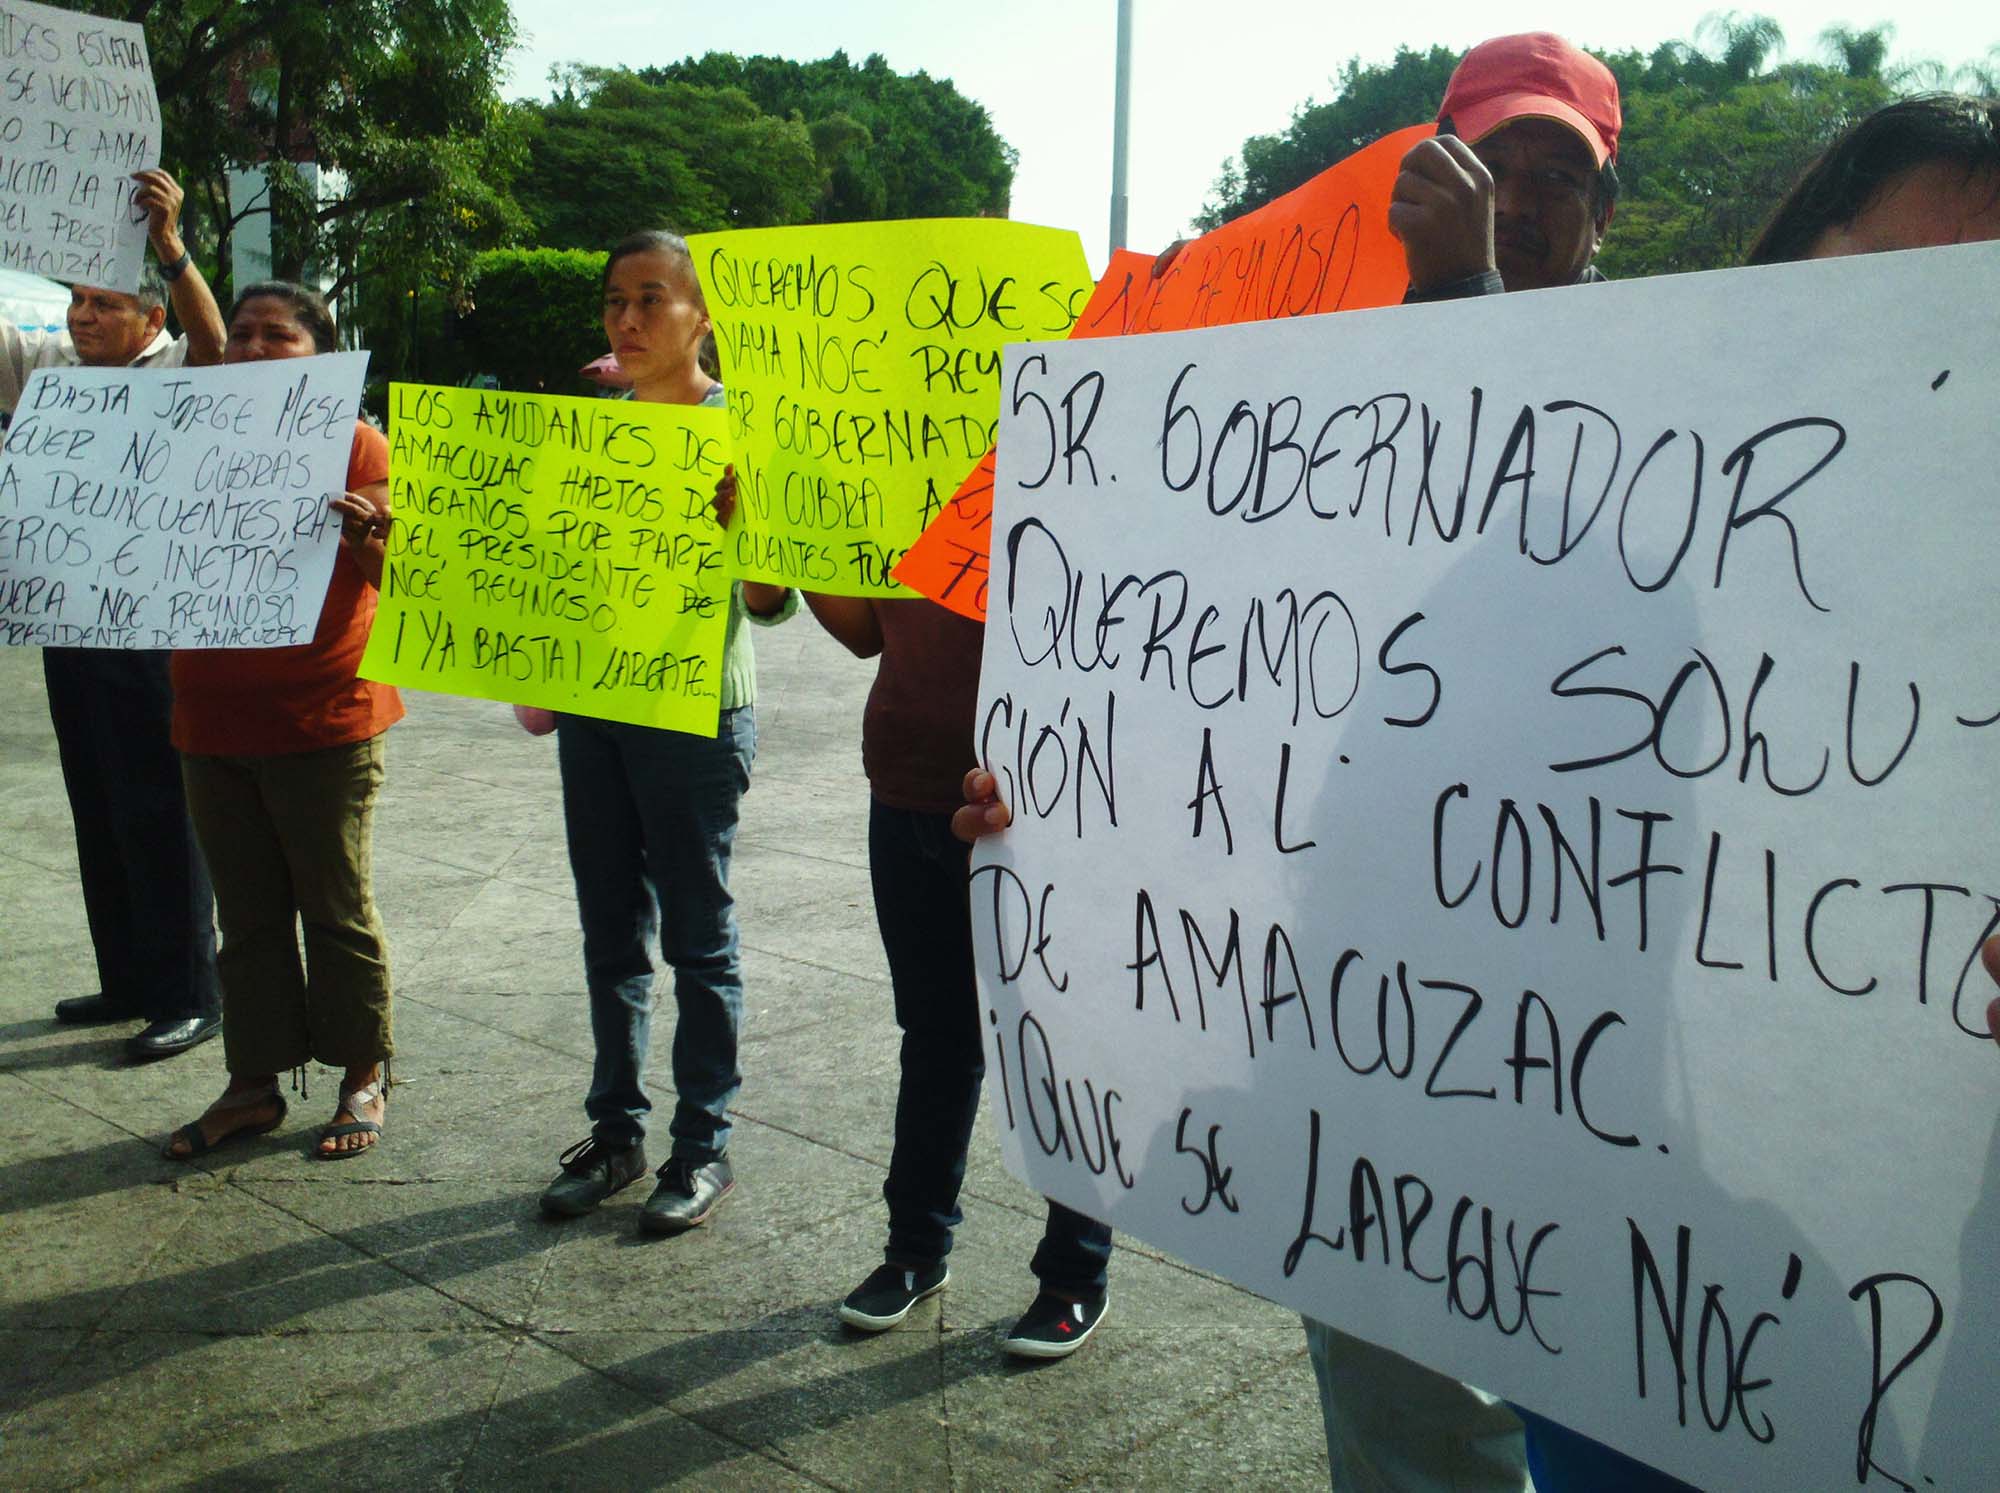 ESTATA
SE VENDAN
DE AMA-
LA
DEL PRESI
AMACUZAC
BASTA JORGE MESE-
GUER. NO CUBRAS
A DELINCUENTES, RA-
TEROS, E INEPTOS.
FUERA "NOÉ" REYNOSO.
PRESIDENTE DE AMACUZAC
LOS AYUDANTES DE
AMACUZAC HARTOS DE
ENGAÑOS POR PARTE
DEL PRESIDENTE DE
NOÉ REYNOSO.
¡YA BASTA! LARGATE...
QUEREMOS QUE SE
VAYA NOÉ REYN
SR GOBERNADO
NO CUBRA A
CUENTES. FUE
NOÉ REYNOSO
SR. GOBERNADOR
QUEREMOS SOLU-
CIÓN AL CONFLICTO
DE AMACUZAC.
¡QUE SE LARGUE NOÉ R.